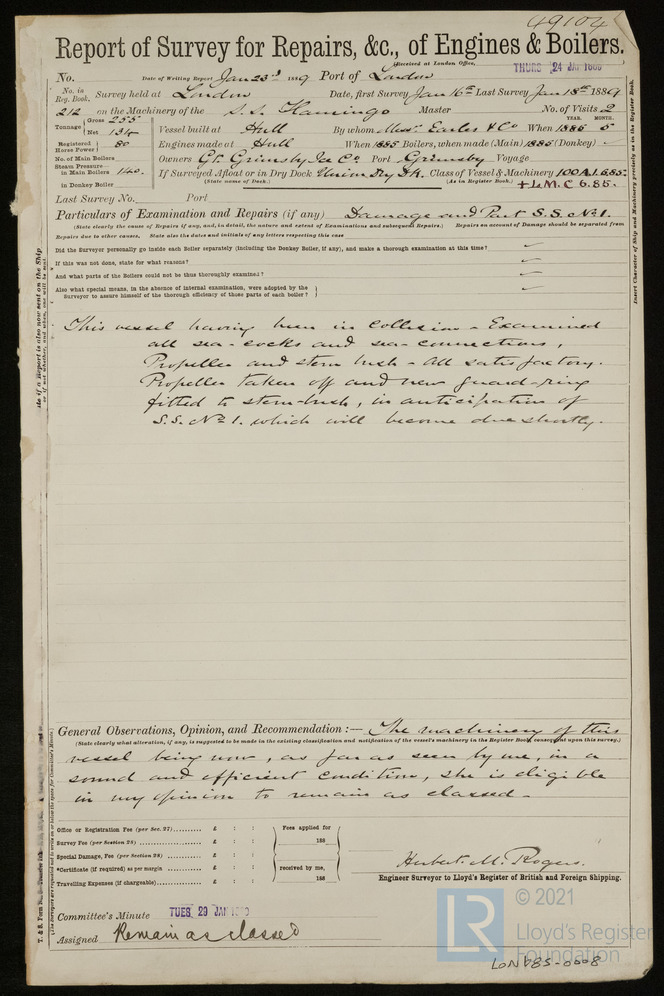 49104
Report of Survey for Repairs, &c., of Engines & Boilers.
(Received at London Office,
THURS 24 JAN 1889
No. Date of Writing Report Jan 23d 1889 Port of London
No. in Reg. Book. Survey held at London Date, first Survey Jan 16th Last Survey Jan 18th 1889
212 on the Machinery of the S.S. Flamingo Master No. of Visits 2
Tonnage Gross 255 Net 134 Vessel built at Hull By whom Messrs Earles & Co When 1885 6 YEAR. MONTH.
Registered Horse Power 80 Engines made at Hull When 1885 Boilers, when made (Main) 1885 (Donkey)
No. of Main Boilers Owners Gt. Grimsby Ice Co Port Grimsby Voyage
Steam Pressure in Main Boilers 140 If Surveyed Afloat or in Dry Dock Union Dry Dk. Class of Vessel & Machinery 100A1.6.85.
in Donkey Boiler (State name of Dock.) (As in Register Book.) + L.M.C 6.85.
Last Survey No. Port
Particulars of Examination and Repairs (if any) Damage and Part S.S. No 1.
(State clearly the cause of Repairs if any, and, in detail, the nature and extent of Examinations and subsequent Repairs.) Repairs on account of Damage should be separated from
Repairs due to other causes. State also the dates and initials of any letters respecting this case
Did the Surveyor personally go inside each Boiler separately (including the Donkey Boiler, if any), and make a thorough examination at this time?
If this was not done, state for what reasons?
And what parts of the Boilers could not be thus thoroughly examined?
Also what special means, in the absence of internal examination, were adopted by the
Surveyor to assure himself of the thorough efficiency of those parts of each boiler?
This vessel having been in Collision - Examined
all sea-cocks and sea-connections,
Propeller and stern bush - All satisfactory.
Propeller taken off and new guard-ring
fitted to stern-bush, in anticipation of
S.S. No 1. which will become due shortly.
General Observations, Opinion, and Recommendation :— The machinery of this
(State clearly what alteration, if any, is suggested to be made in the existing classification and notification of the vessel's machinery in the Register Book, consequent upon this survey.)
vessel being now, as far as seen by me, in a
sound and efficient condition, she is eligible
in my opinion to remain as classed -
Office or Registration Fee (per Sec. 27) £ : : Fees applied for
Survey Fee (per Section 28) £ : : 188
Special Damage, Fee (per Section 28) £ : :
*Certificate (if required) as per margin £ : : received by me,
Travelling Expenses (if chargeable) £ : : 188
Herbert M. Rogers.
Engineer Surveyor to Lloyd's Register of British and Foreign Shipping.
Committee's Minute TUES 29 JAN
Assigned Remain as classed
Insert Character of Ship and Machinery precisely as in the Register Book.
© 2021
LR Lloyd's Register
Foundation
LON785-0008